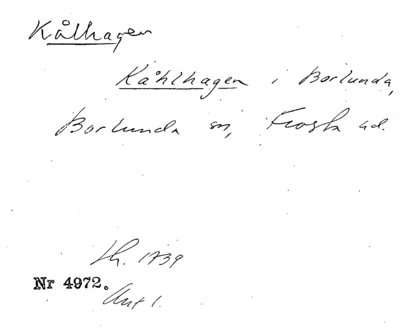 Kålhagen
Kåhlhagen i Borlunda,
Borlunda sn, Frosta hd.
Lh. 1739
Nr 4972.
Akt 1.